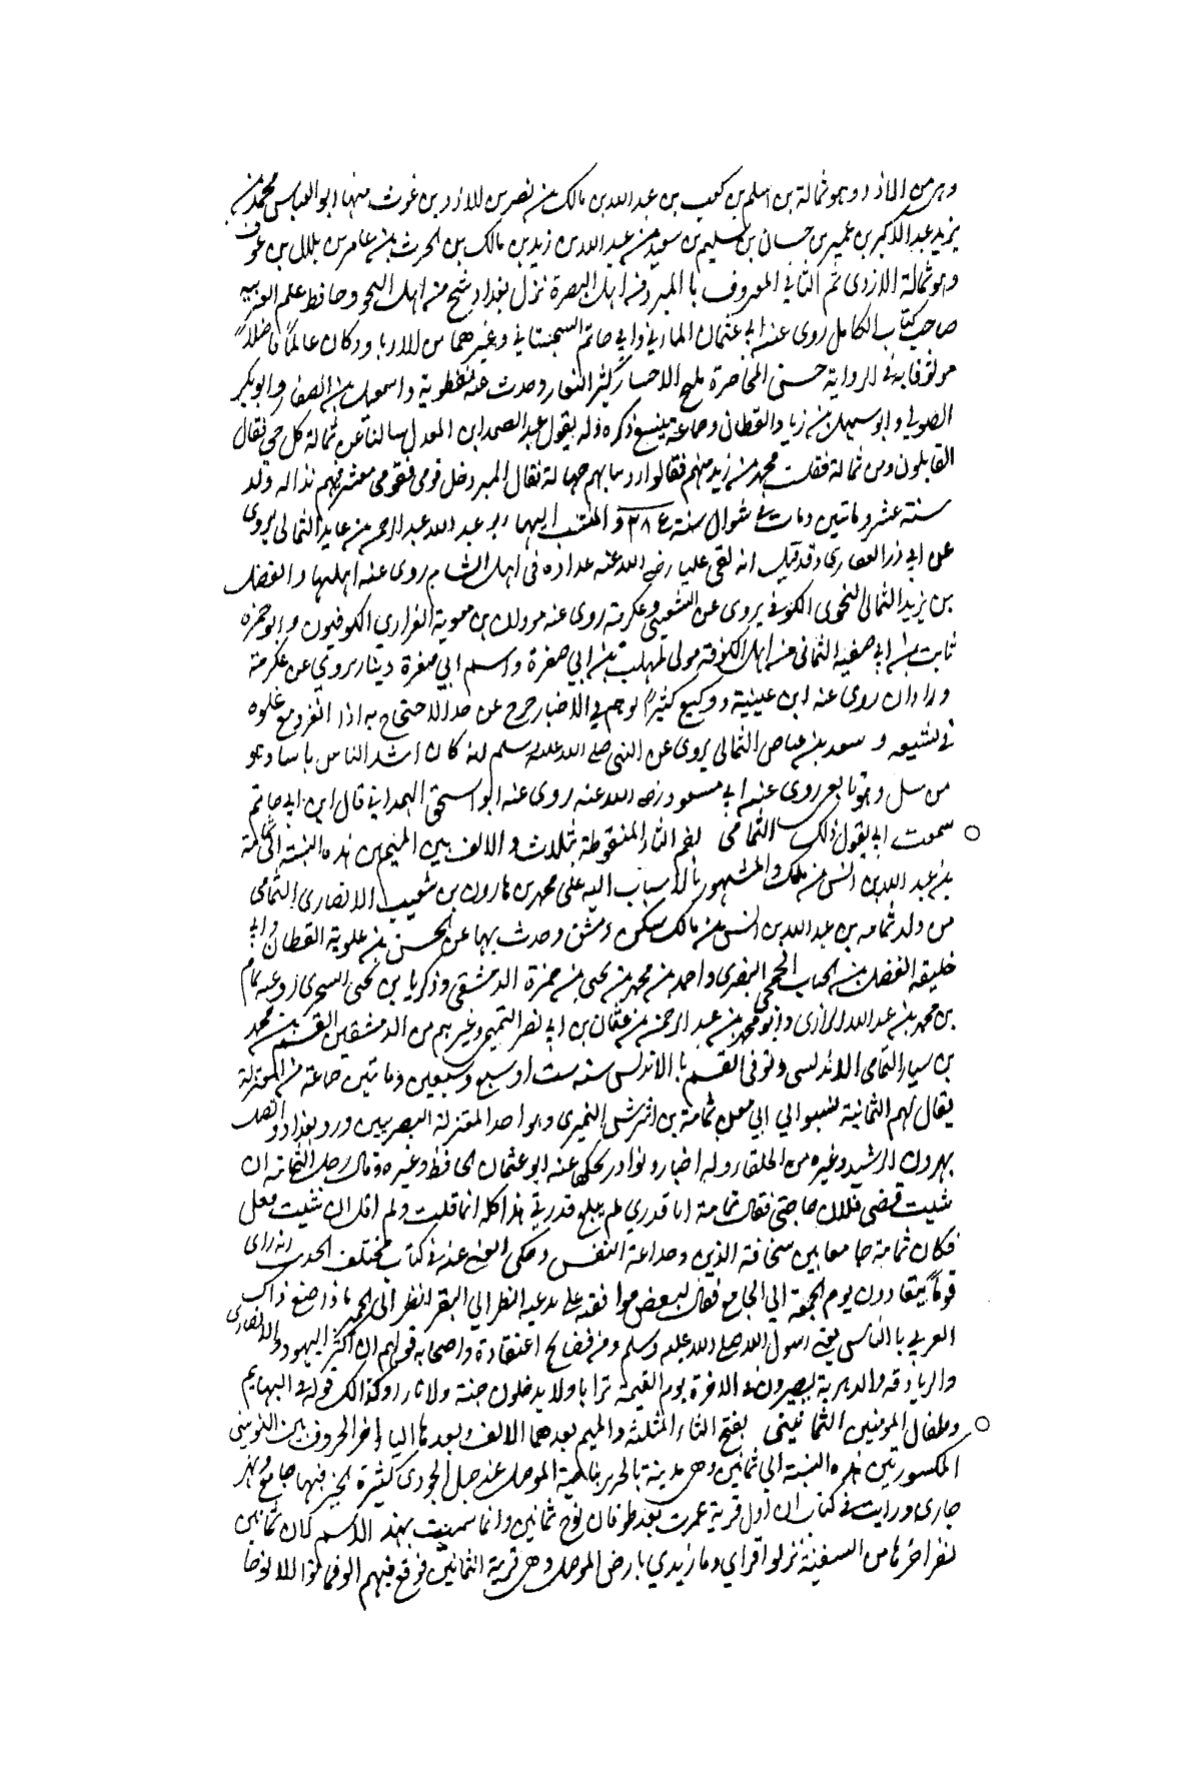 وهى من الازد وهو ثمالة بن اسلم بن كعب بن عبد الله بن مالك بن نصر بن الازد بن غوث منها ابو العباس محمد بن
يزيد بن عبد الاكبر بن عمير بن حسان بن سليم بن سعيد بن عبد الله بن زيد بن مالك بن الحرث بن عامر بن بلال بن عوف
وهو ثمالة الازدى ثم الثمالي المعروف با المبرد من اهل البصرة نزل بغداد شيخ من اهل النحو وحافظ علم العربيه
صاحب كتاب الكامل روى عن ابي عثمان المازني وابي حاتم السجستاني وغيرهما من الادبا وكان عالماً فاضلاً
موثوقا به في الرواية حسن المحاضرة مليح الاخبار كثير النوادر حدث عنه نفطوية واسمعيل بن الصفار وابو بكر
الصولي وابو سهل بن زياد القطان وجماعة يتسع ذكره وله يقول عبد الصمد ابن المعدل سالنا عن ثمالة كل حي فقال
القايلون ومن ثمالة فقلت محمد بن يزيد منهم فقالوا زدتنا بهم جهالة فقال المبرد خل قومي فقومي معشر فيهم نذاله ولد
سنة عشر وماتين ومات في شوال سنة ٢٨٤ والمنتسب اليها ابو عبد الله عبد الرحمن بن عايد الثمالى يروى
عن ابي ذر الغفارى وقد قيل انه لقى عليا رضي الله عنه عداده فى اهل الشام روى عنه اهلها والفضل
بن يزيد الثمالى النحوى الكوفي يروى عن الشعبي وعكرمة روى عنه مروان بن معوية الفزاري الكوفيون وابو حمزه
ثابت بن ابي صفية الثمالى من اهل الكوفة مولى المهلب بن ابي صفرة واسم ابي صفرة دينار يروي عن عكرمة
وزاذان روى عنه ابن عيينة ووكيع كثير الوهم في الاخبار خرج عن حد الاحتجاج به اذا انفرد مع غلوه
في تشيعه وسعد بن عياض الثمالى يروى عن النبي صلى الله عليه وسلم انه كان اشد الناس باسا وهو
مرسل وهو تابعي روى عن ابي مسعود رضي الله عنه روى عنه ابو اسحق الهمداني قال ابن ابي حاتم
سمعت ابي يقول ذلك الثمامى بضم الثاء المنقوطة بثلاث والالف بين الميمين هذه النسبة الى ثمامة
بن عبد الله بن انس بن مالك والمشهور بالانتساب اليه على محمد بن هارون بن شعيب الانصارى الثمامى
من ولد ثمامه بن عبد الله بن انس بن مالك سكن دمشق وحدث بها عن الحسن بن علوية القطان وابي
خليفه الفضل بن الحباب الجمحي البصرى واحمد بن محمد بن يحى بن حمزة الدمشقى وذكريا بن يحى السجزى روى عنه تمام
بن محمد بن عبد الله الرازى وابو محمد بن عبد الرحمن بن عثمان بن ابي نصر التميمي وغيرهم من الدمشقين القسم بن محمد
بن سيار الثمامى الاندلسى وتوفى القسم با الاندلس سنه ست او سبع وسبعين وماتين جماعة من المعتزلة
يقال لهم الثمانية نسبوا الي ابي معن ثمامة بن اشرس النميري وهو احد المعتزلة البصريين ورد بغداد واتصل
بهرون الرشيد وغيره من الخلفا وله اخبار ونوادر يحكيها عنه ابو عثمان الجاحظ وغيره وقال رجل لثمامه ان
شيت قضى فلان حاجتى فقال ثمامة انا قدري لم يبلغ قدرتي هذا كله انما قلت ولم اقل ان شيت فعل
فكان ثمامة جامعا بين سخافة الدين وخلاعة النفس وحكى القتبي عنه في كتاب مختلف الحديث انه راى
قوماً يتعادون يوم الجمعة الي الجامع فقال لبعض موافقيه على بدعته انظر الي البقر انظر الى الحمير ماذا صنع ذاك
العربي با الناس يعني رسول الله صلى الله عليه وسلم ومن فضائح اعتقاده واصحابه قولهم ان اكثر اليهود والنصارى
والزنادقه والدهرية يصيرون في الاخرة يوم القيمة ترابا ولا يدخلون جنة ولا نار وكذالك قوله في البهايم
وطفال المومنين الثمانينى بفتح الثاء المثلثه والميم بعدهما الالف وبعدها اليا اخر الحروف بين النونين
المكسورتين هذه النسبة الي ثمانين وهى مدينة بالجزيرة بناحية الموصل عند جبل الجودى كثيرة الخير فيها جامع ونهر
جارى ورايت في كتاب ان اول قرية عمرت بعد طوفان نوح ثمانين وانما سميت بهذا الاسم لان ثمانين
نفرا خرجا من السفينة نزلوا قراي وما زبدي با رض الموصل وهى قرية الثمانين فوقع فيهم الوبا فماتوا الا نوحا